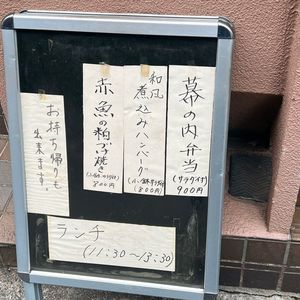 幕の内弁当
(サラダ付)
900円
和風
煮込みハンバーグ
800円)
赤魚の粕づけ焼き
800円
お持ち帰りも
出来ます。
ランチ
(11:30〜13:30)